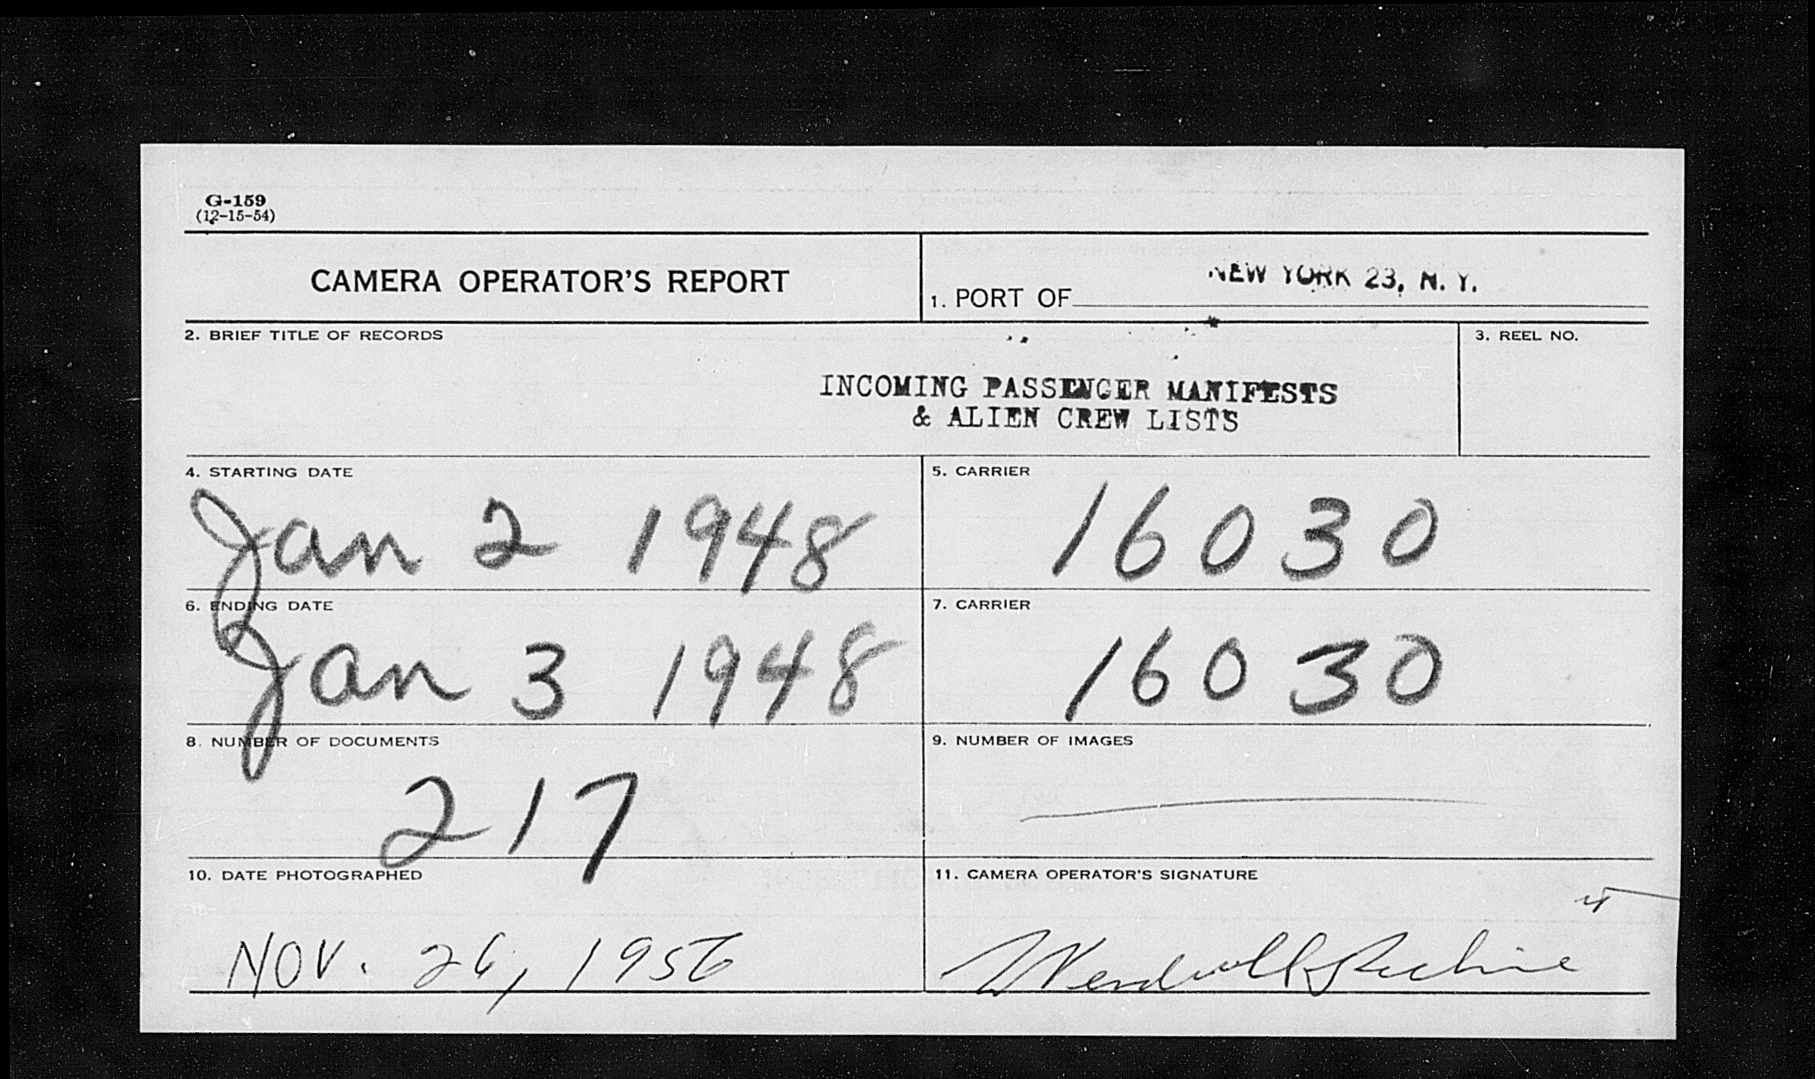 G-159
(12-15-54)
CAMERA OPERATOR'S REPORT
1. PORT OF NEW YORK 23, N. Y.
2. BRIEF TITLE OF RECORDS
3. REEL NO.
INCOMING PASSENGER MANIFESTS
& ALIEN CREW LISTS
4. STARTING DATE
Jan 2 1948
5. CARRIER
16030
6. ENDING DATE
Jan 3 1948
7. CARRIER
16030
8. NUMBER OF DOCUMENTS
217
9. NUMBER OF IMAGES
10. DATE PHOTOGRAPHED
NOV. 26, 1956
11. CAMERA OPERATOR'S SIGNATURE